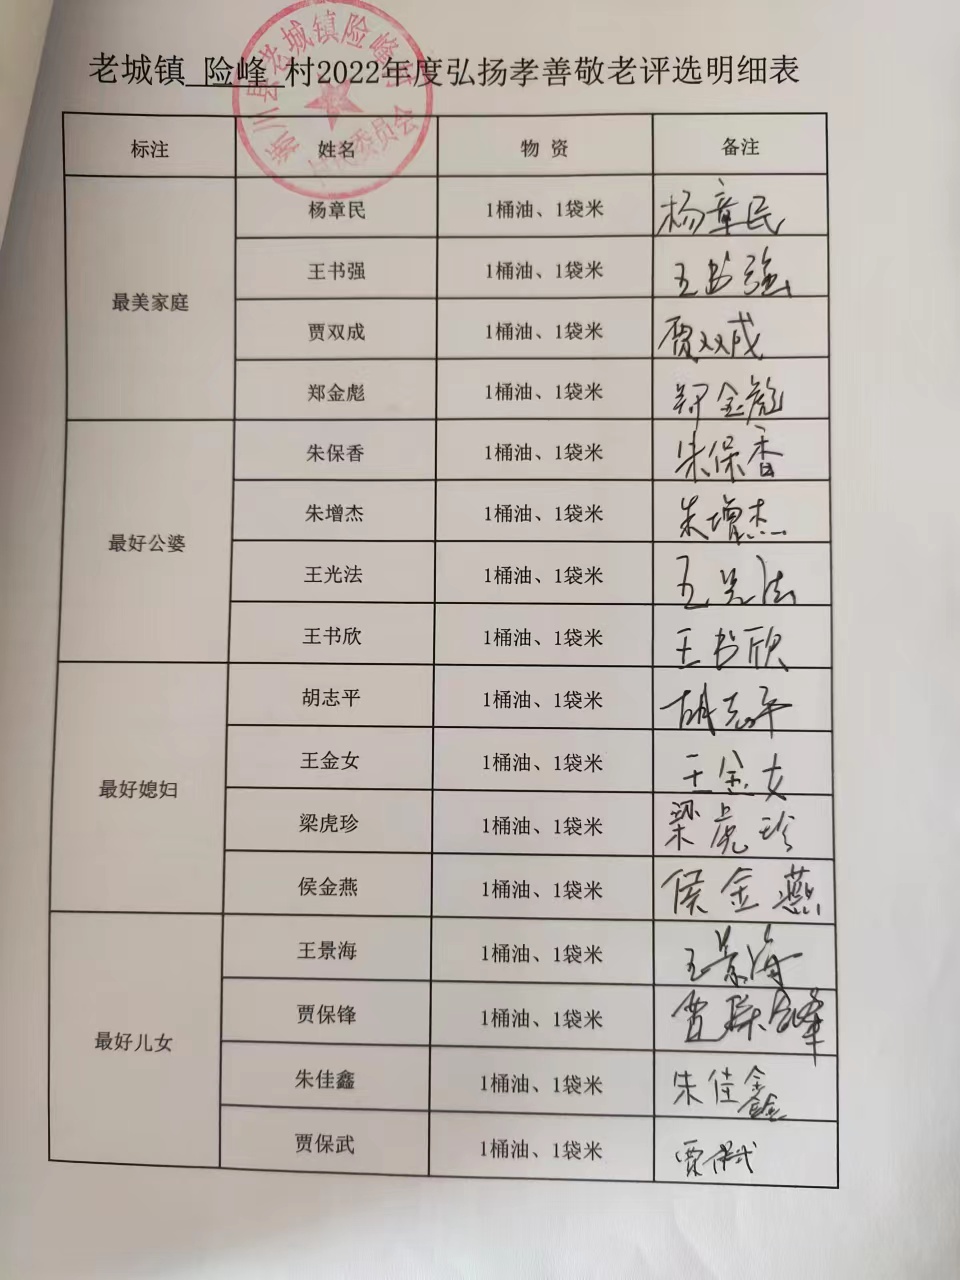 老城镇 险峰 村2022年度弘扬孝善敬老评选明细表
淅川县老城镇险峰村
村民委员会
标注 姓名 物 资 备注
最美家庭
杨章民 1桶油、1袋米 杨章民
王书强 1桶油、1袋米 王书强
贾双成 1桶油、1袋米 贾双成
郑金彪 1桶油、1袋米 郑金彪
最好公婆
朱保香 1桶油、1袋米 朱保香
朱增杰 1桶油、1袋米 朱增杰
王光法 1桶油、1袋米 王光法
王书欣 1桶油、1袋米 王书欣
最好媳妇
胡志平 1桶油、1袋米 胡志平
王金女 1桶油、1袋米 王金女
梁虎珍 1桶油、1袋米 梁虎珍
侯金燕 1桶油、1袋米 侯金燕
最好儿女
王景海 1桶油、1袋米 王景海
贾保锋 1桶油、1袋米 贾保锋
朱佳鑫 1桶油、1袋米 朱佳鑫
贾保武 1桶油、1袋米 贾保武